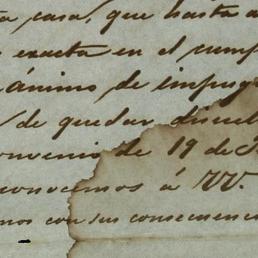 ta casa, que hasta a
exacta en el cump
ánimo de impug
de quedar disuel
onvenio de 19 de
conocemos á VV.
mos con sus consecuenci